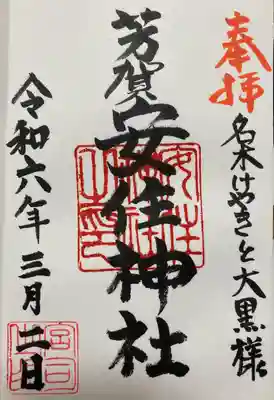 奉拝
名木けやきと大黒様
芳賀安住神社
令和六年三月二日